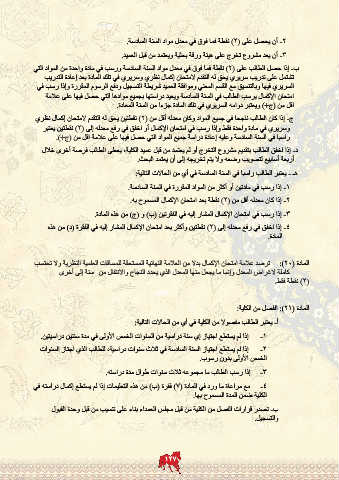 ٢. أن يحصل على (٢) نقطة فما فوق في معدل مواد السنة السادسة.
٣. أن يعد مشروع تخرج على هيئة ورقة بحثية ويعتمد من قبل العميد.
ب. إذا حصل الطالب على (٢) نقطة فما فوق في معدل مواد السنة السادسة ورسب في مادة واحدة من المواد التي
تشتمل على تدريب سريري يحق له التقدم لامتحان إكمال نظري وسريري في تلك المادة بعد إعادة التدريب
السريري فيها وبالتنسيق مع القسم المعني وموافقة العميد شريطة التسجيل ودفع الرسوم المقررة وإذا رسب في
امتحان الإكمال يرسب الطالب في السنة السادسة ويعيد دراستها بجميع موادها التي حصل فيها على علامة
أقل من (ج+) ويعتبر دوامه السريري في تلك المادة جزءا من السنة المعادة.
ج. إذا كان الطالب ناجحا في جميع المواد وكان معدله أقل من (٢) نقطتين يحق له التقدم لإمتحان إكمال نظري
وسريري في مادة واحدة فقط وإذا رسب في امتحان الإكمال أو اخفق في رفع معدله إلى (٢) نقطتين يعتبر
راسبا في السنة السادسة وعليه إعادة دراسة جميع المواد التي حصل فيها على علامة أقل من (ج+).
د. إذا اخفق الطالب بتقديم مشروع التخرج أو لم يعتمد من قبل عميد الكلية، يعطى الطالب فرصة أخرى خلال
أربعة أسابيع لتصويب وضعه ولا يتم تخريجه إلى أن يعتمد البحث.
هـ. يعتبر الطالب راسبا في السنة السادسة في أي من الحالات التالية:
١. إذا رسب في مادتين أو أكثر من المواد المقررة في السنة السادسة.
٢. إذا كان معدله أقل من (٢) نقطة بعد امتحان الإكمال المسموح به.
٣. إذا رسب في امتحان الإكمال المشار إليه في الفقرتين (ب) و (ج) من هذه المادة.
٤. إذا اخفق في رفع معدله إلى (٢) نقطتين وأكثر بعد امتحان الإكمال المشار إليه في الفقرة (د) من هذه
المادة.
المادة (٢٠): ترصد علامة امتحان الإكمال بدلا من العلامة النهائية المستحقة للمساقات العلمية النظرية ولا تحتسب
كاملة لأغراض المعدل وإنما ما يجعل منها المعدل الذي يحدد النجاح والانتقال من سنة إلى أخرى
(٢) نقطة فقط.
المادة (٢١): الفصل من الكلية:
أ- يعتبر الطالب مفصولا من الكلية في أي من الحالات التالية:
١- إذا لم يستطع اجتياز أي سنة دراسية من السنوات الخمس الأولى في مدة سنتين دراسيتين.
٢- إذا لم يستطع اجتياز السنة السادسة في ثلاث سنوات دراسية، للطالب الذي اجتاز السنوات
الخمس الأولى بدون رسوب.
٣- إذا رسب الطالب ما مجموعه ثلاث سنوات طوال مدة دراسته.
٤- مع مراعاة ما ورد في المادة (٧) فقرة (ب) من هذه التعليمات إذا لم يستطع إكمال دراسته في
الكلية ضمن المدة المسموح بها.
ب- تصدر قرارات الفصل من الكلية من قبل مجلس العمداء بناء على تنسيب من قبل وحدة القبول
والتسجيل.
١٢٧